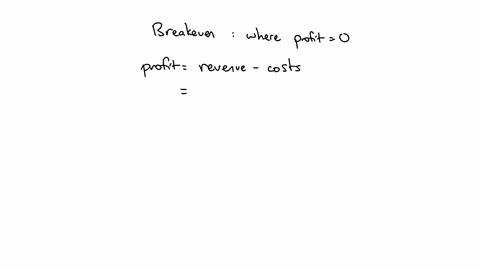 Breakeven : where profit = 0
profit = revenue - costs
=